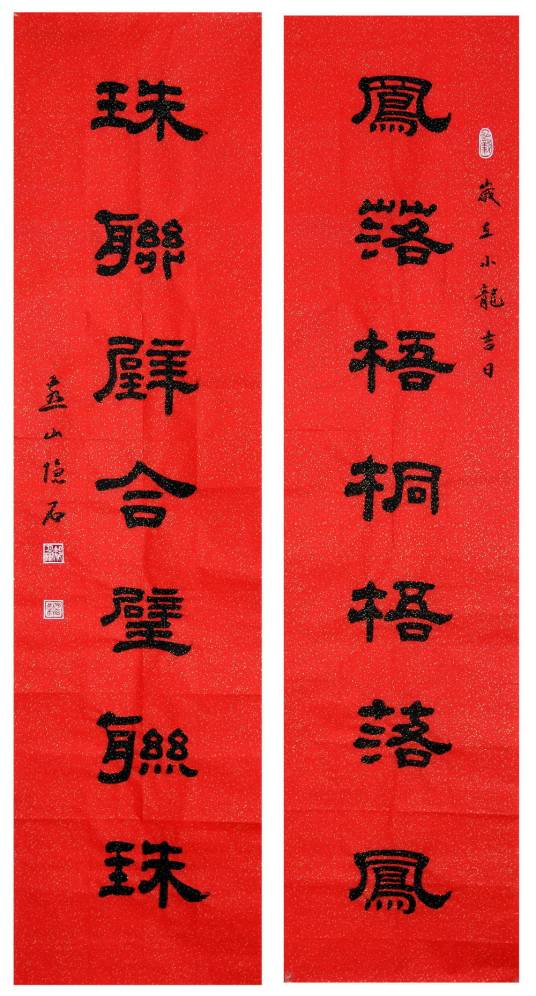 歲在小龍吉日
鳳落梧桐梧落鳳
珠聯璧合璧聯珠
燕山隐石